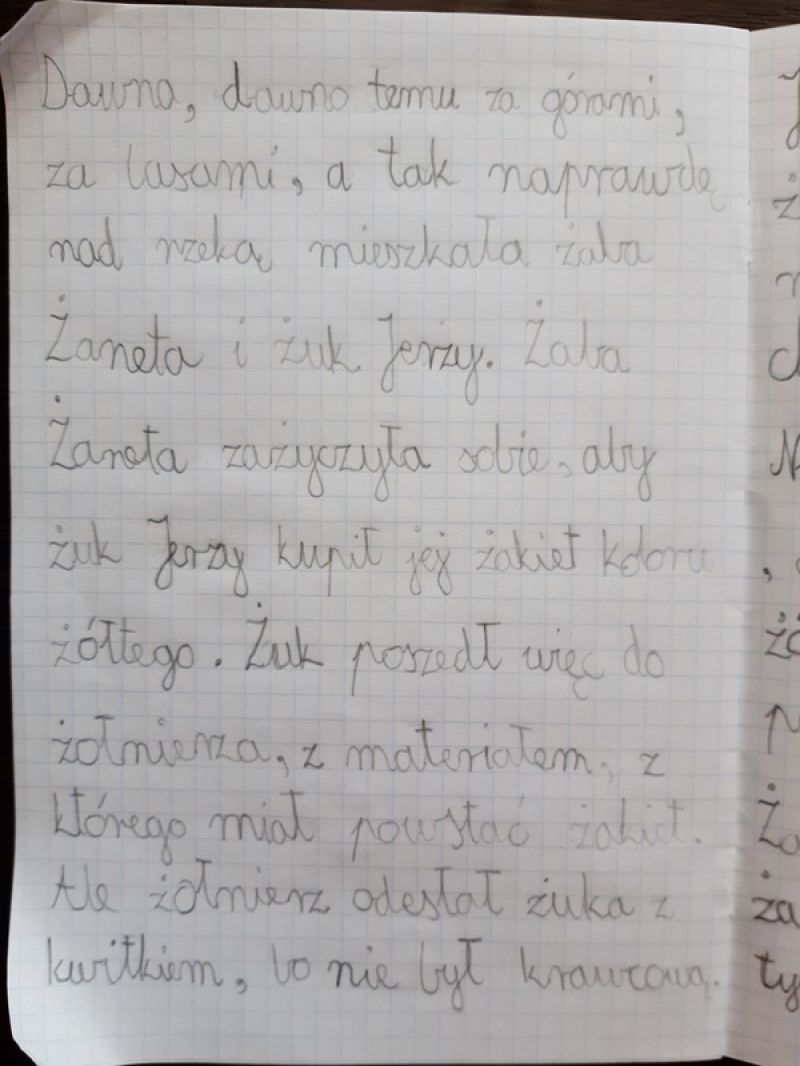 Dawno, dawno temu za górami,
za lasami, a tak naprawdę
nad rzeką mieszkała żaba
Żaneta i żuk Jerzy. Żaba
Żaneta zażyczyła sobie, aby
żuk Jerzy kupił jej żakiet koloru
żółtego. Żuk poszedł więc do
żołnierza, z materiałem, z
którego miał powstać żakiet.
Ale żołnierz odesłał żuka z
kwitkiem, bo nie był krawcową.